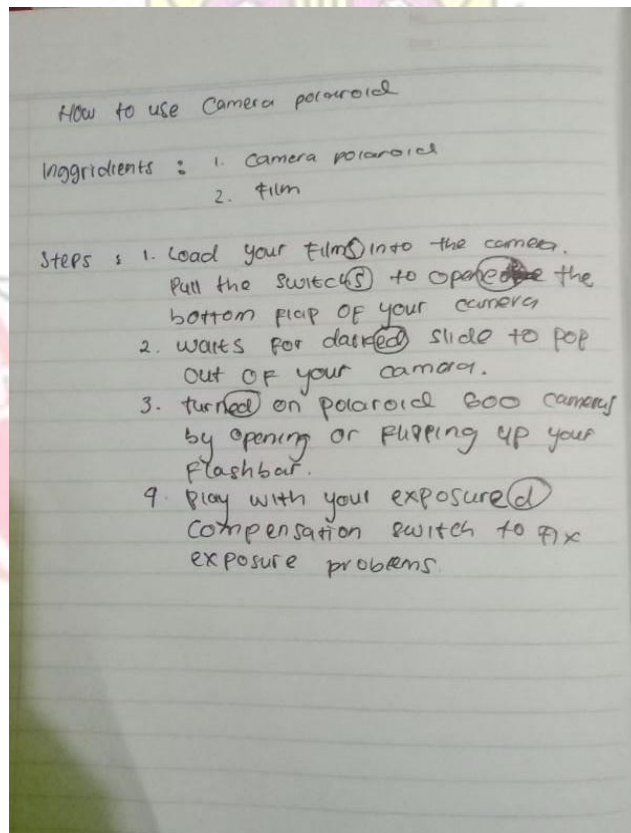 How to use Camera polauroid
Inggridients : 1. Camera polaroid
2. Film
Steps : 1. Load your films into the camera.
Pull the switchs to opened the
bottom flap of your camera
2. waits for darked slide to pop
out of your camera.
3. turned on polaroid 600 cameras
by opening or flipping up your
flashbar.
4. play with your exposured
compensation switch to fix
exposure problems.